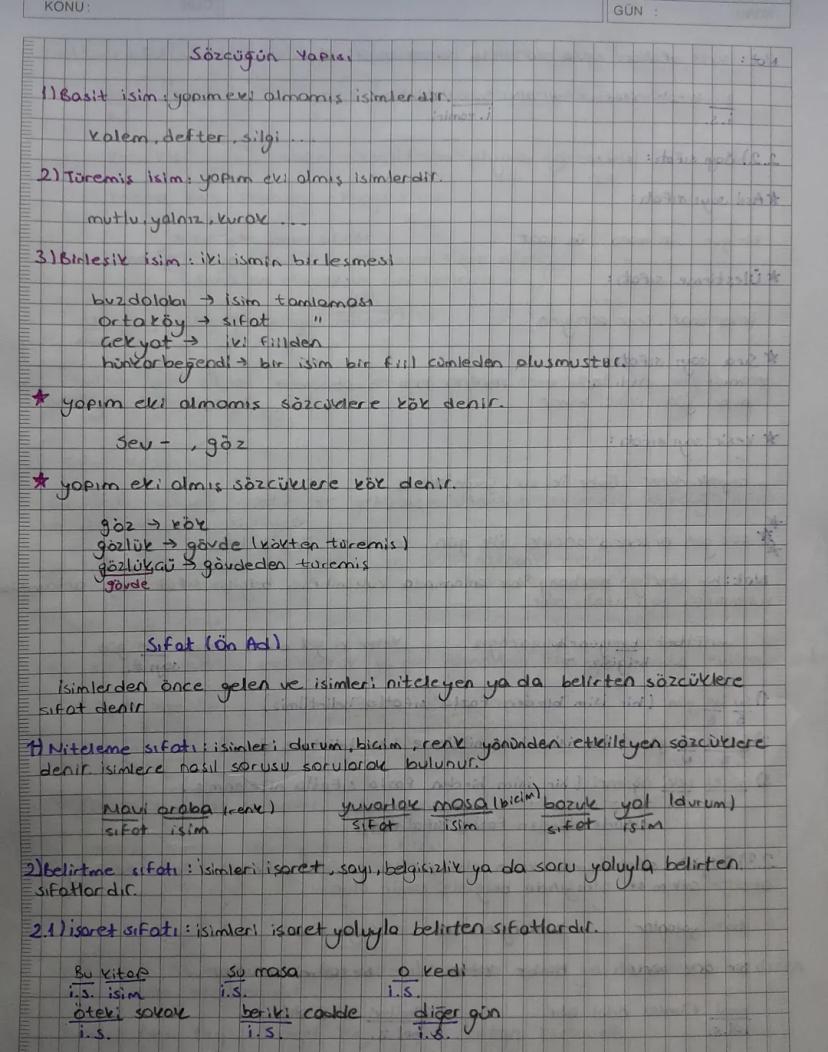 KONU:
GÜN :
Sözcüğün Yapısı
1) Basit isim: yapım eki almamış isimlerdir.
kalem, defter, silgi ...
2) Türemiş isim: yapım eki almış isimlerdir.
mutlu, yalnız, kurak ...
3) Birleşik isim: iki ismin birleşmesi
buzdolabı → isim tamlaması
ortaköy → sıfat "
Çekyat → iki fiilden
hünkarbeğendi → bir isim bir fiil cümleden oluşmuştur.
★ yapım eki almamış sözcüklere kök denir.
Sev - , göz
★ yapım eki almış sözcüklere kök denir.
göz → kök
gözlük → gövde (kökten türemiş)
gözlükçü → gövdeden türemiş
gövde
Sıfat (Ön Ad)
İsimlerden önce gelen ve isimleri niteleyen ya da belirten sözcüklere
sıfat denir
1) Niteleme sıfatı: isimleri durum, biçim, renk yönünden etkileyen sözcüklere
denir. isimlere nasıl sorusu sorularak bulunur.
Mavi araba (renk) yuvarlak masa (biçim) bozuk yol (durum)
sıfat isim sıfat isim sıfat isim
2) Belirtme sıfatı: isimleri işaret, sayı, belgisizlik ya da soru yoluyla belirten
sıfatlardır.
2.1) işaret sıfatı: isimleri işaret yoluyla belirten sıfatlardır.
Bu kitap şu masa o kedi
i.s. isim i.s. i.s.
öteki sokak beriki cadde diğer gün
i.s. i.s. i.s.